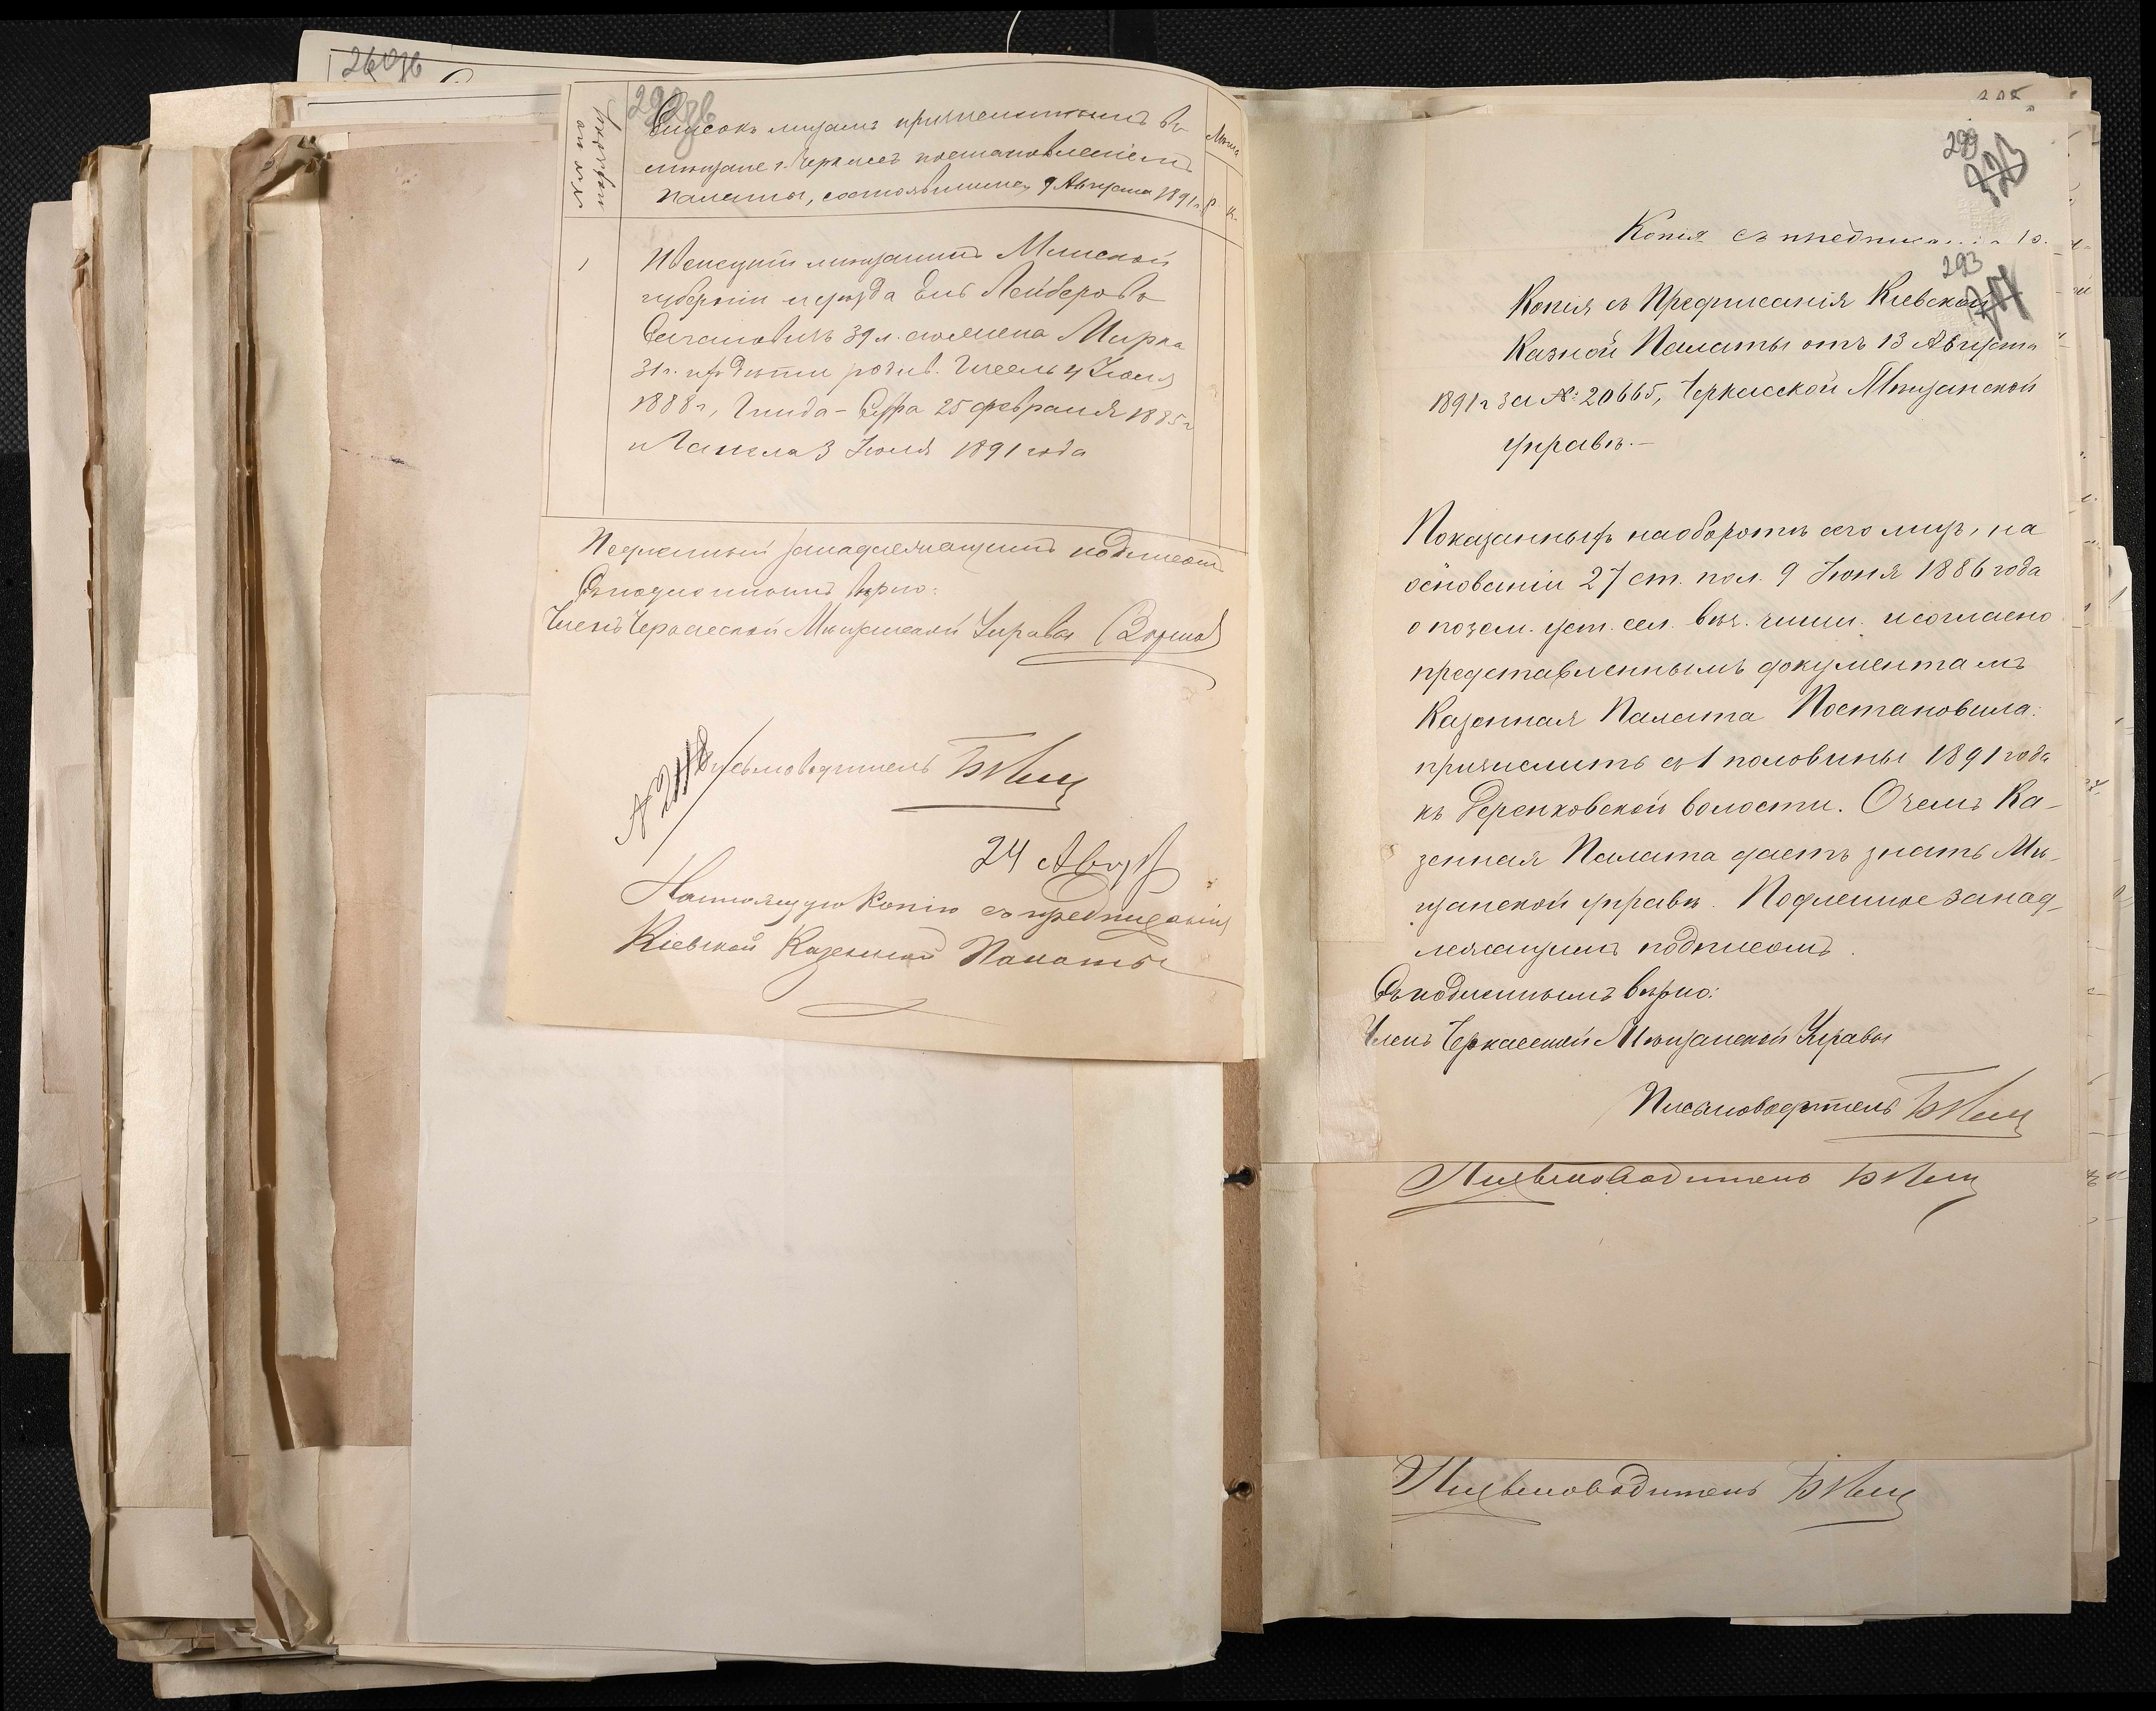 26 об
292 об
Списокъ лицамъ причисленнымъ въ
мѣщане г. Черкассъ постановленіемъ
Палаты, состоявшимся 9 Августа 1891 г.
Р. К.
1
Ивенецкій мѣщанинъ Минской
губерніи и уѣзда Ель Лейберовъ
39 л. его жена Мирка
31 г. ихъ дѣти родив. 4 Іюля
1888 г, Гинда - 25 февраля 1885 г
и 3 Іюля 1891 года
Подленный занадлежащимъ подписомъ
Съ подленнымъ вѣрно:
Членъ Черкасской Мѣщанской Управы
Письмоводитель
24 Авгус
Настоящую копію съ предписанія
Кіевской Казенной Палаты
299
Копія съ
293
Копія съ Предписанія Кіевской
Казной Палаты отъ 13 Августа
1891 г за №: 20665, Черкасской Мѣщанской
управѣ. —
Показанныхъ наоборотѣ сего лицъ, на
основаніи 27 ст. пол. 9 Іюня 1886 года
о позем. уст. сел. вѣч. чинш. и согласно
представленнымъ документамъ
Казенная Палата Постановила:
причислить съ 1 половины 1891 года
къ Деренковской волости. Очемъ Ка-
зенная Палата даетъ знать Мѣ-
щанской управѣ. Подленное занад-
лежащимъ подписомъ.
Съ подленнымъ вѣрно:
Членъ Черкасской Мѣщанской Управы
Письмоводитель
Письмоводитель
Письмоводитель